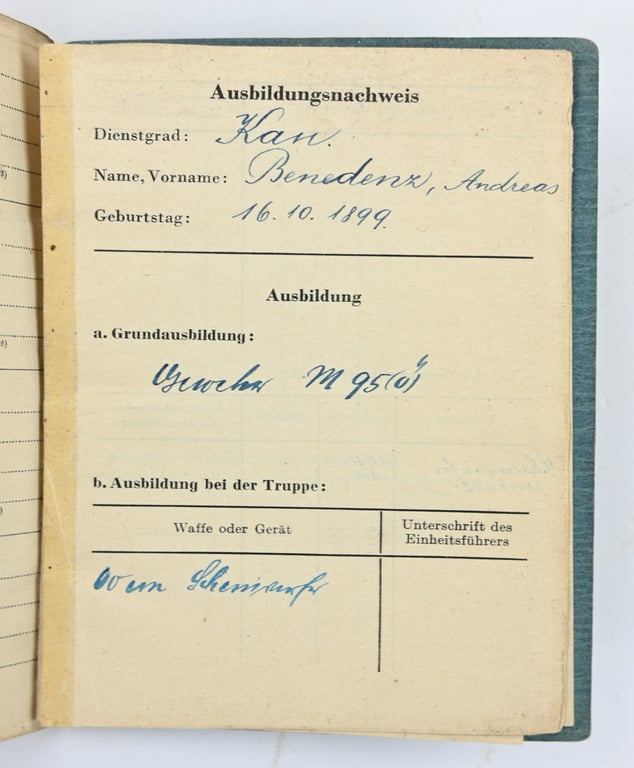 Ausbildungsnachweis
Dienstgrad: Kan.
Name, Vorname: Benedenz, Andreas
Geburtstag: 16. 10. 1899.
Ausbildung
a. Grundausbildung:
Gewehr M 95(ö)
b. Ausbildung bei der Truppe:
Waffe oder Gerät
Unterschrift des
Einheitsführers
60 cm Scheinwerfer